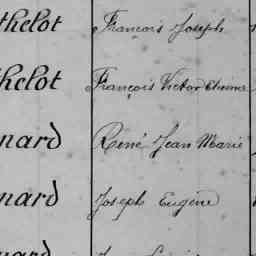 thelot François Joseph
thelot François Victor Etienne
nard René Jean Marie
nard Joseph Eugène
nard